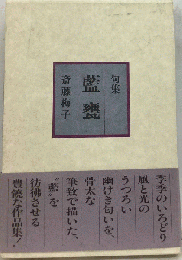 句集
藍甕
斎藤梅子
季季のいろどり
風と光の
うつろい
幽けき匂いを、
骨太な
筆致で描いた、
“藍”を
彷彿させる
豊饒な作品集!